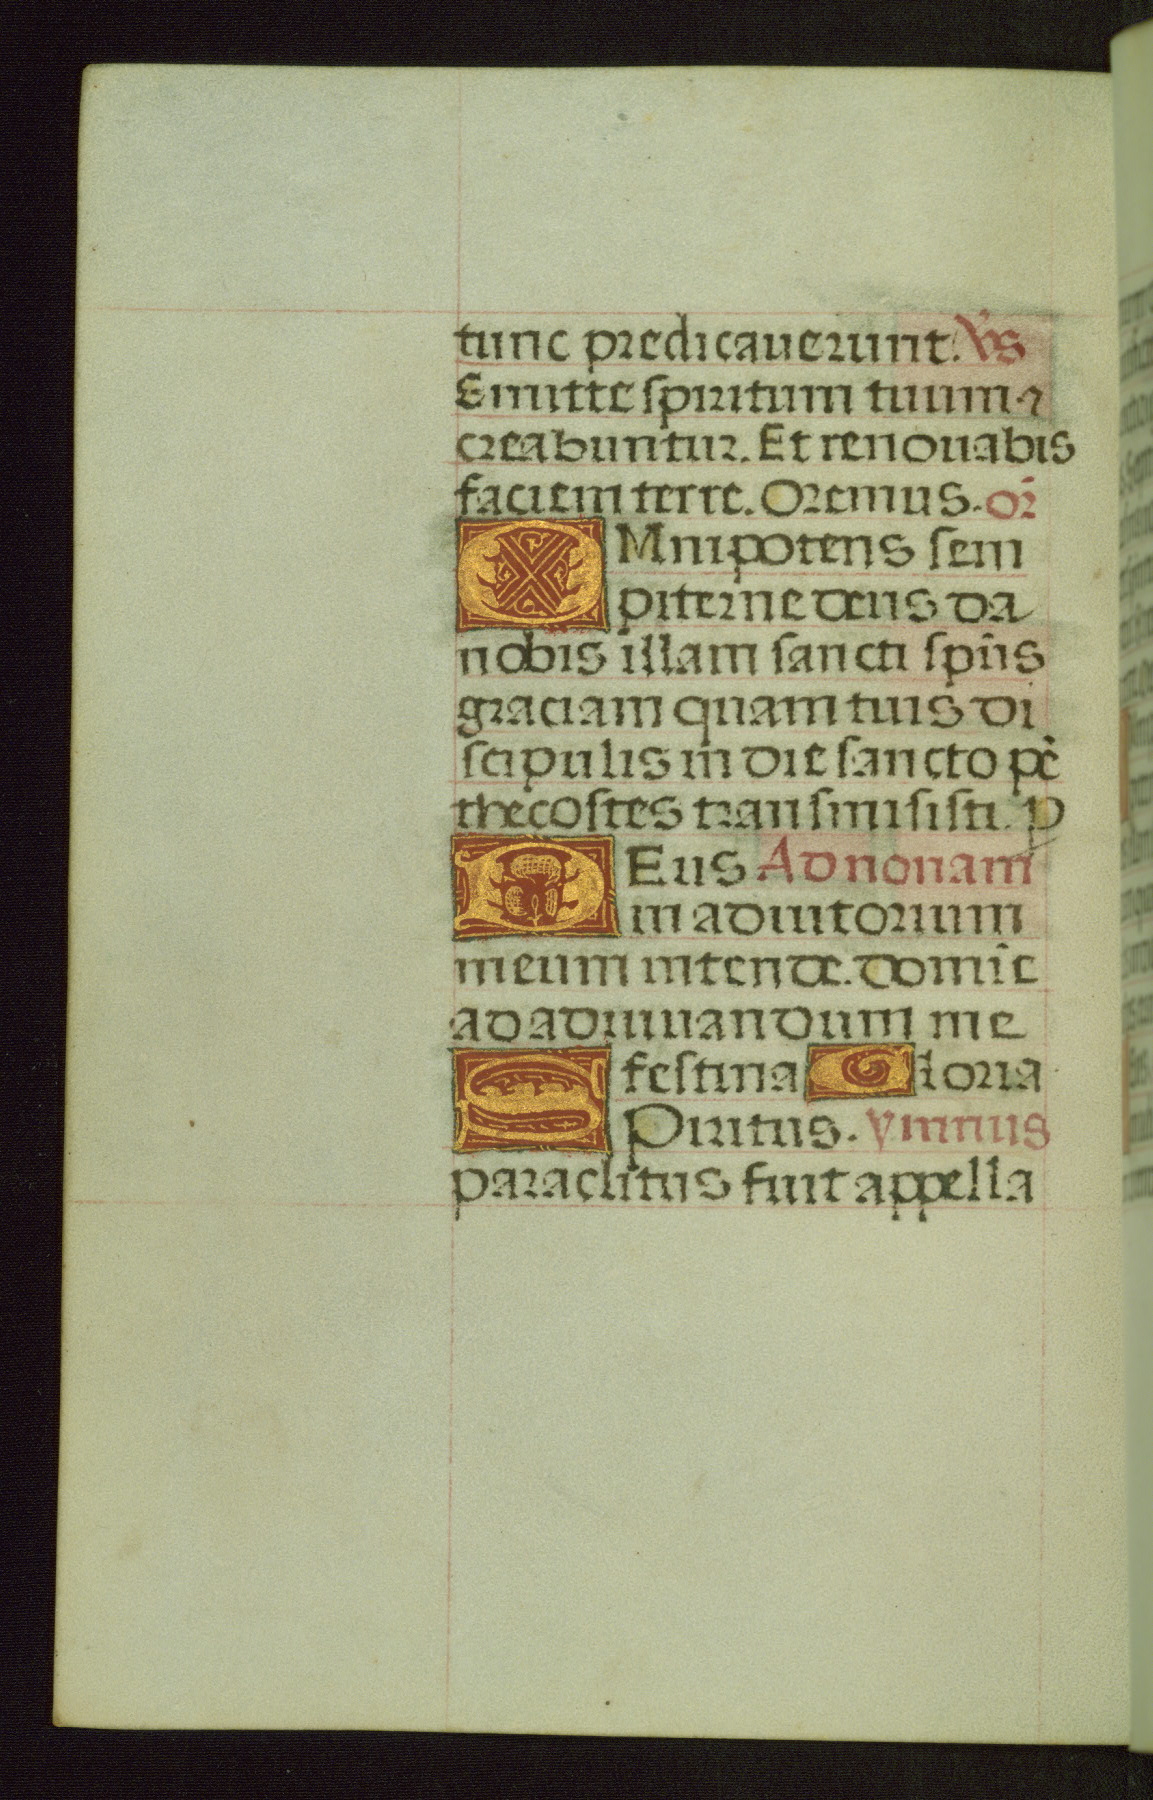 tunc predicauerunt. Vs̄
Emitte spiritum tuum ⁊
creabuntur. Et renouabis
faciem terre. Oremus. or̄
OMnipotens sem
piterne deus da
nobis illam sancti spūs
graciam quam tuis di
scipulis in die sancto pē
thecostes transmisisti. P
DEus Ad nonam
in adiutorium
meum intende. domīe
ad adiuuandum me
festina Gloria
SPiritus. ymnus
paraclitus fuit appella